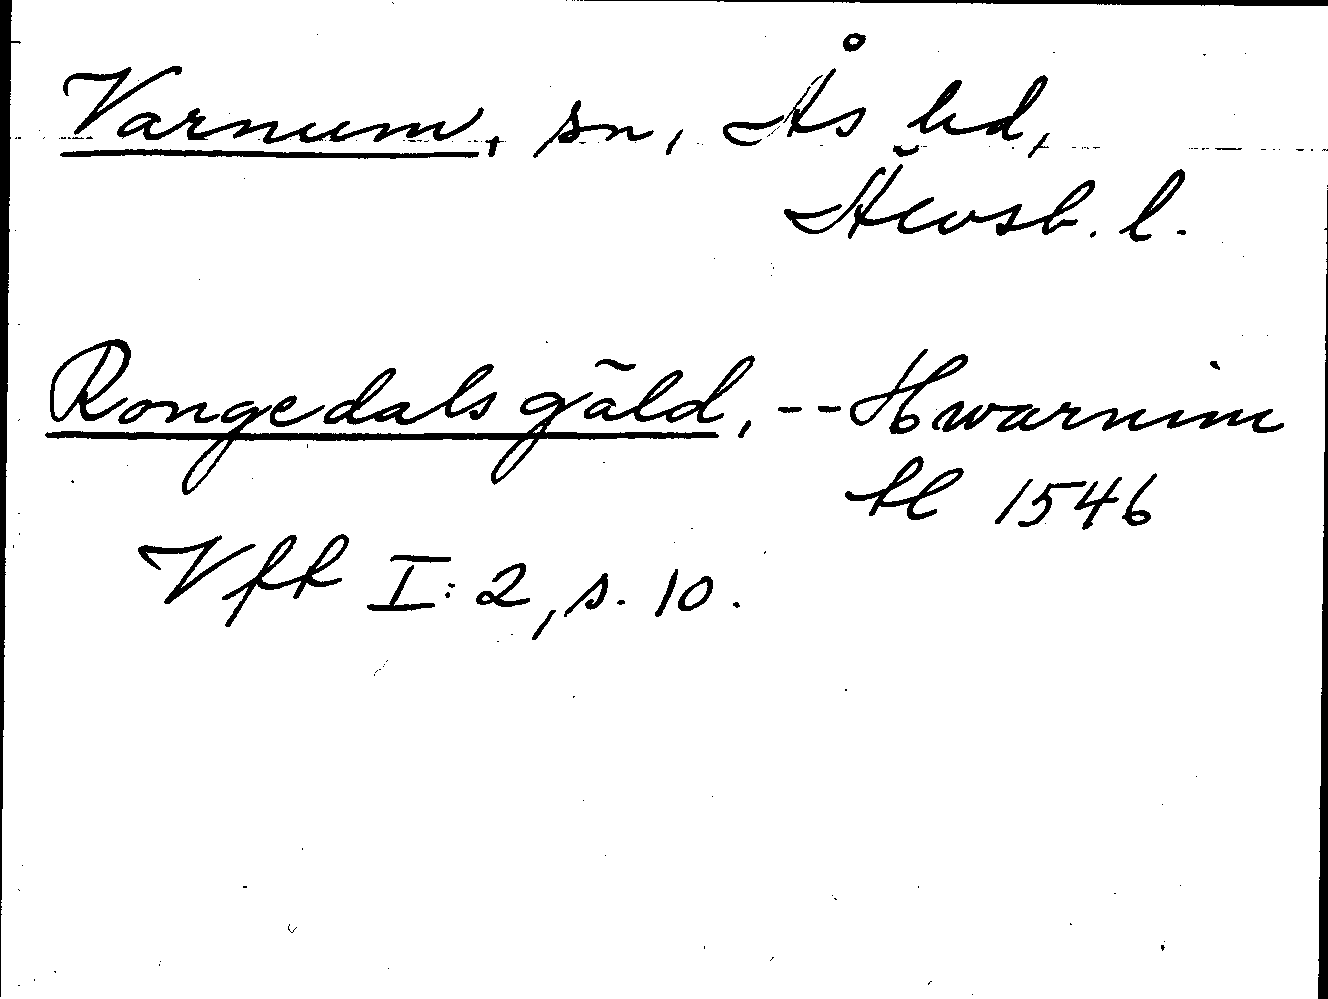 Varnum, sn, Ås hd,
Älvsb. l.
Rongedals gäld, -- Hwarnim
tl 1546
Vfk I:2, s. 10.